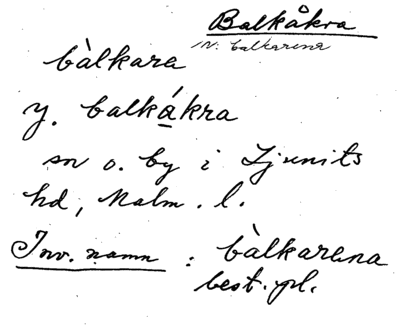 Balkåkra
N. balkarena
bàlkara
y. balkákra
sn o. by i Ljunits
hd, Malm. l.
Inv. namn : bàlkarena
best. pl.